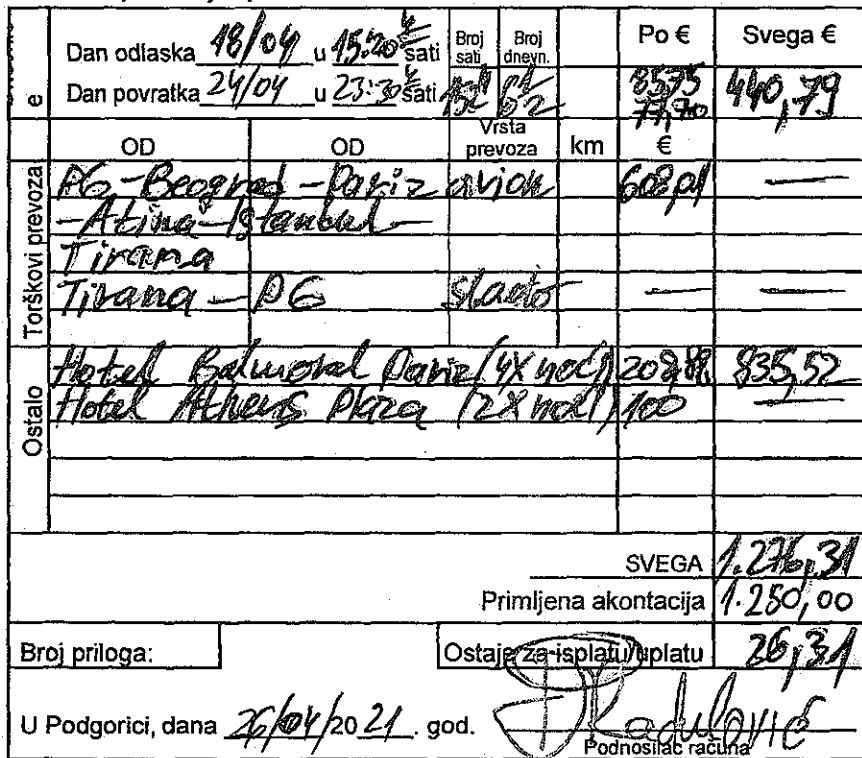 e
Dan odlaska 18/04 u 15:20 sati
Broj sati
Broj dnevn.
Po €
Svega €
Dan povratka 24/04 u 23:30 sati
152
6 1/2
85,75
77,70
440,79
OD
OD
Vrsta prevoza
km
€
Torškovi prevoza
PG-Beograd-Pariz avion 608,01 —
-Atina-Istanbul-
Tirana
Tirana - PG — —
Ostalo
Hotel Balmoral Pariz (4X noć) 208,88 835,52
Hotel Athens Plaza (2X noć) 100 —
SVEGA 1.276,31
Primljena akontacija 1.250,00
Broj priloga:
Ostaje za isplatu/uplatu 26,31
U Podgorici, dana 26/04/20 21 . god.
DRadulović
Podnosilac računa